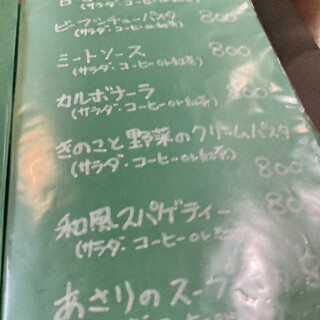 (サラダ・コーヒーor紅茶)
ビーフシチューパスタ 800
(サラダ・コーヒーor紅茶)
ミートソース 800
(サラダ・コーヒーor紅茶)
カルボナーラ 800
(サラダ・コーヒーor紅茶)
きのこと野菜のクリームパスタ
(サラダ・コーヒーor紅茶) 800
和風スパゲティー 80
(サラダ・コーヒーor紅茶)
あさりのスープ
(サラダ・コーヒーor